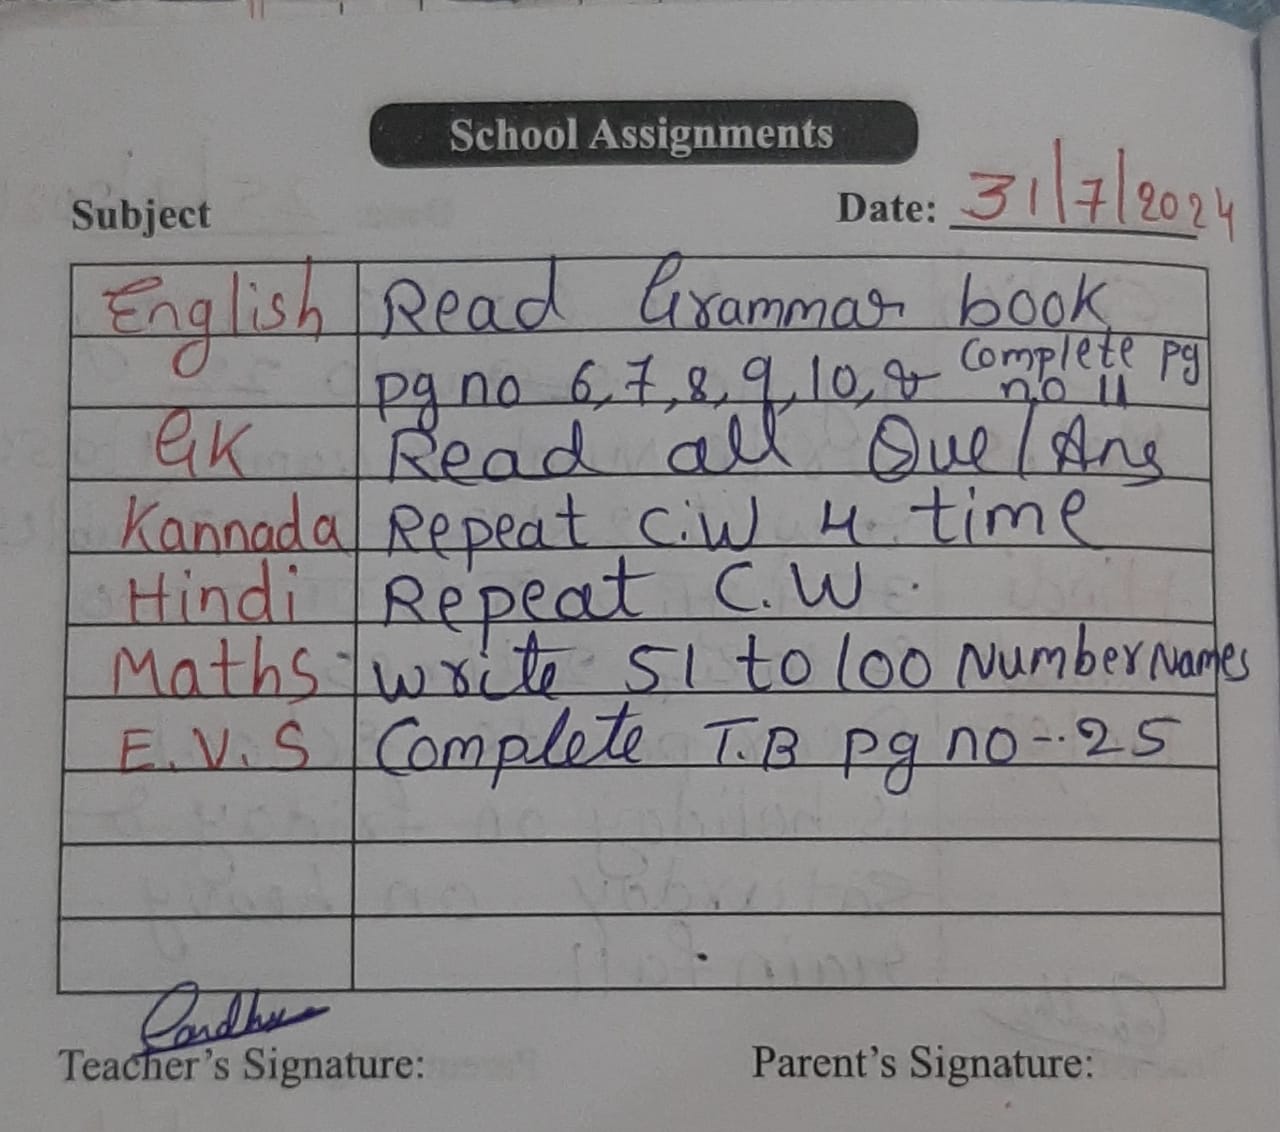 School Assignments
Subject Date: 31/7/2024
English Read Grammar book
pg no 6,7,8,9,10,& Complete pg no 11
GK Read all Que/Ans
Kannada Repeat C.W 4 time
Hindi Repeat C.W.
Maths Write 51 to 100 Number Names
E.V.S Complete T.B pg no-25
Teacher's Signature: Parent's Signature: